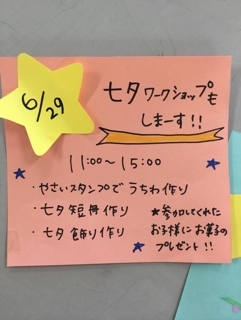 6/29
七夕ワークショップも
しまーす!!
11:00～15:00
・やさいスタンプでうちわ作り
・七夕短冊作り
・七夕飾り作り
★参加してくれた
お子様にお菓子の
プレゼント!!